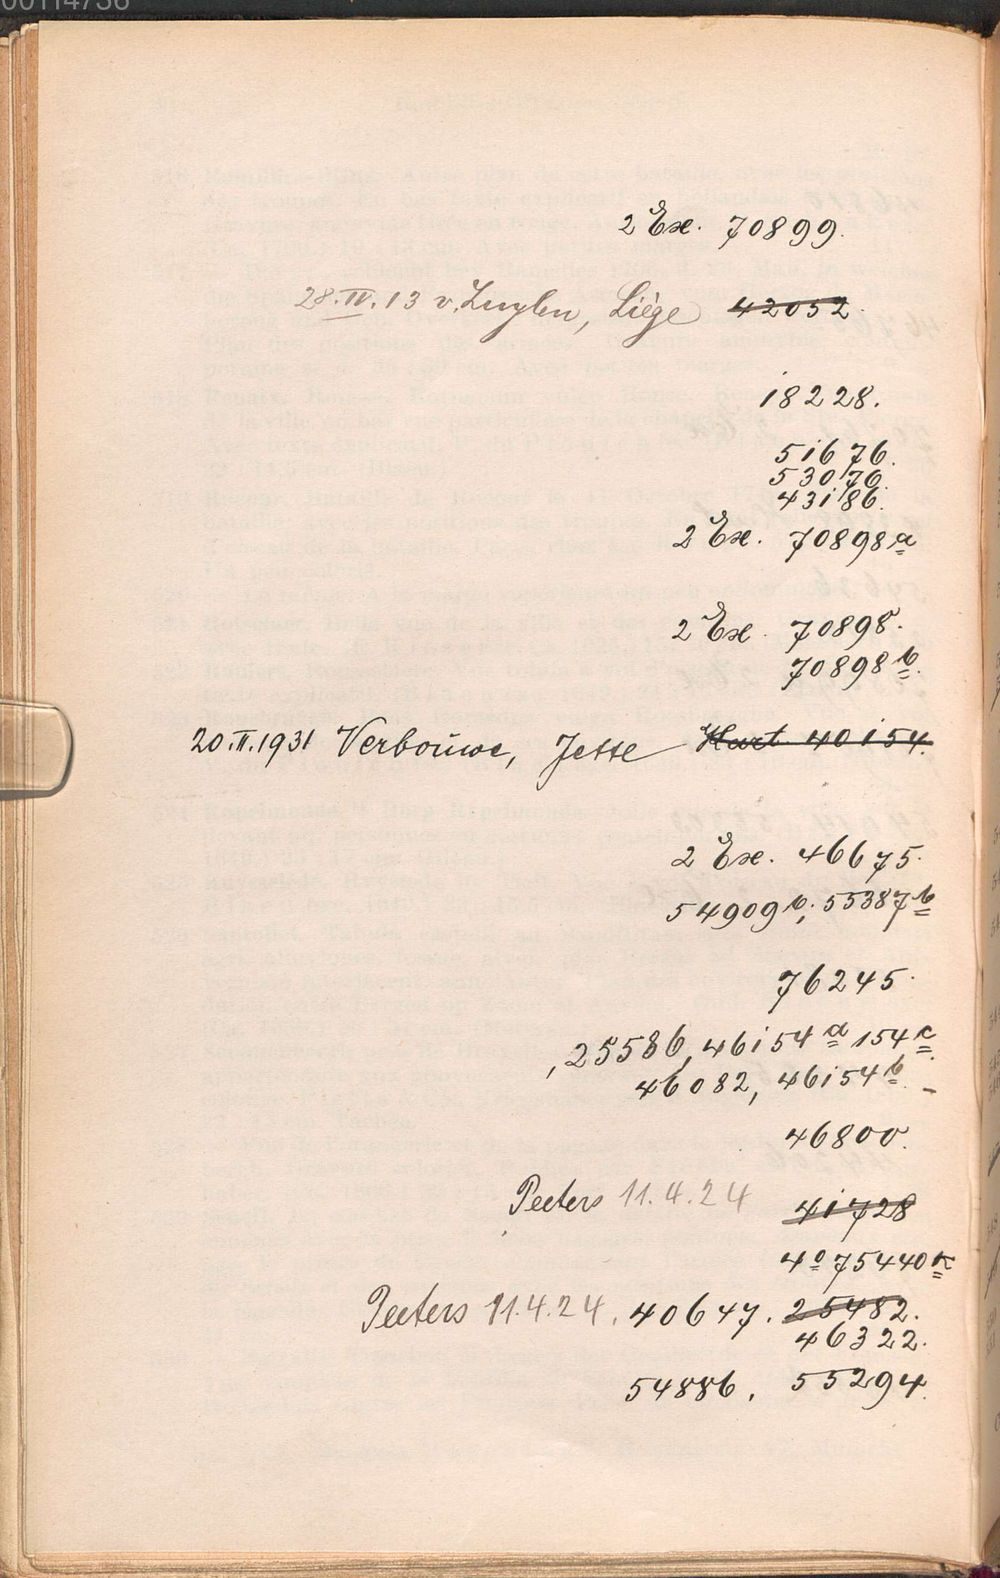 00114736
2 Ex. 70899.
28.IV.13 v. Zuylen, Liége 42052.
18228.
51676.
53076.
43186.
2 Ex. 70898a
2 Ex. 70898.
70898b.
20.II.1931 Verbouwe, Jette Kart 40154.
2 Ex. 46675.
54909b; 55387b
76245.
, 25586, 46154a 154c.
46082, 46154b. -
46800.
Peeters 11.4.24 41728
4° 75440k
Peeters 11.4.24. 40647. 25482.
46322.
54886, 55294.